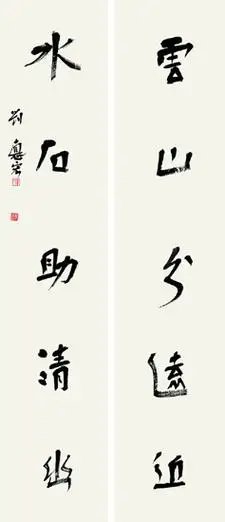 雲山分遠近
水石助清幽
劉